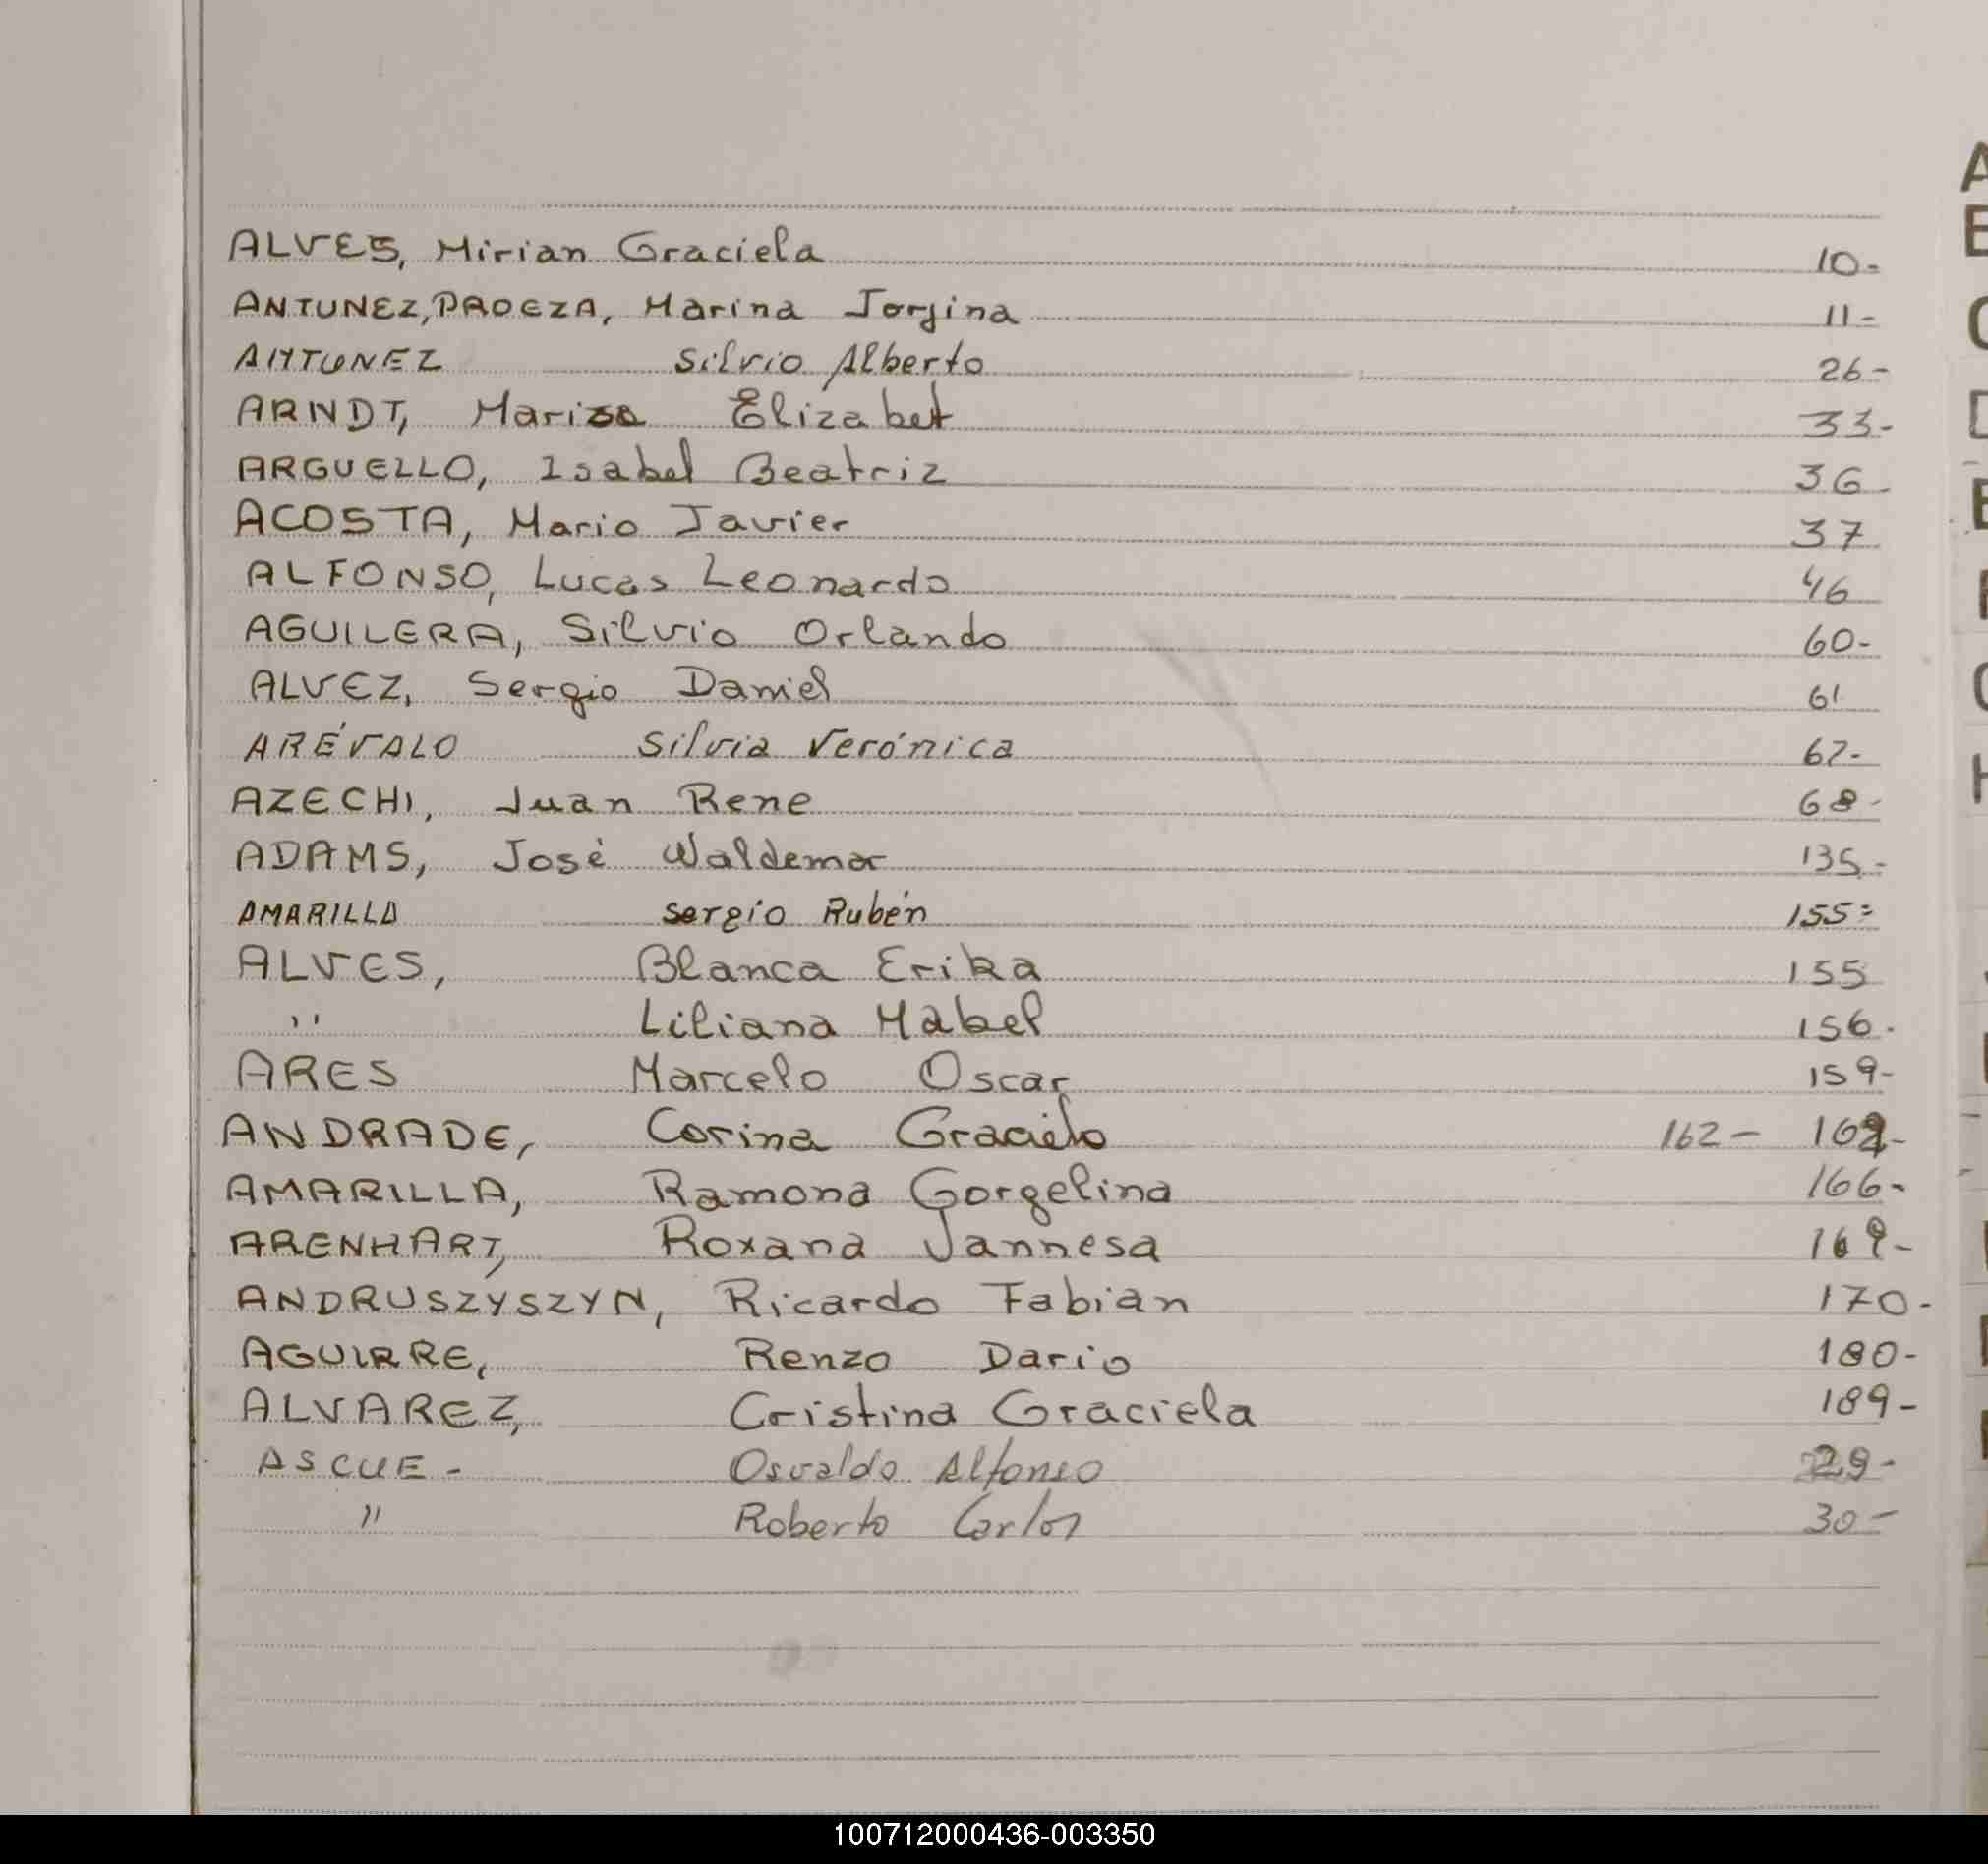 ALVES, Mirian Graciela 10-
ANTUNEZ, PROEZA, Marina Jorjina 11-
ANTUNEZ Silvio Alberto 26-
ARNDT, Marisa Elizabet 33-
ARGUELLO, Isabel Beatriz 36-
ACOSTA, Mario Javier 37
ALFONSO, Lucas Leonardo 46
AGUILERA, Silvio Orlando 60-
ALVEZ, Sergio Daniel 61
ARÉVALO Silvia Verónica 62-
AZECHI, Juan Rene 68-
ADAMS, José Waldemar 135-
AMARILLO Sergio Rubén 155-
ALVES, Blanca Erika 155
" Liliana Mabel 156.
ARES Marcelo Oscar 159-
ANDRADE, Corina Graciela 162-
AMARILLA, Ramona Gorgelina 166-
ARENHART, Roxana Jannesa 169-
ANDRUSZYSZYN, Ricardo Fabian 170-
AGUIRRE, Renzo Dario 180-
ALVAREZ, Cristina Graciela 189-
ASCUE- Osvaldo Alfonso 29-
" Roberto Carlos 30-
A
E
C
D
E
F
G
H
100712000436-003350